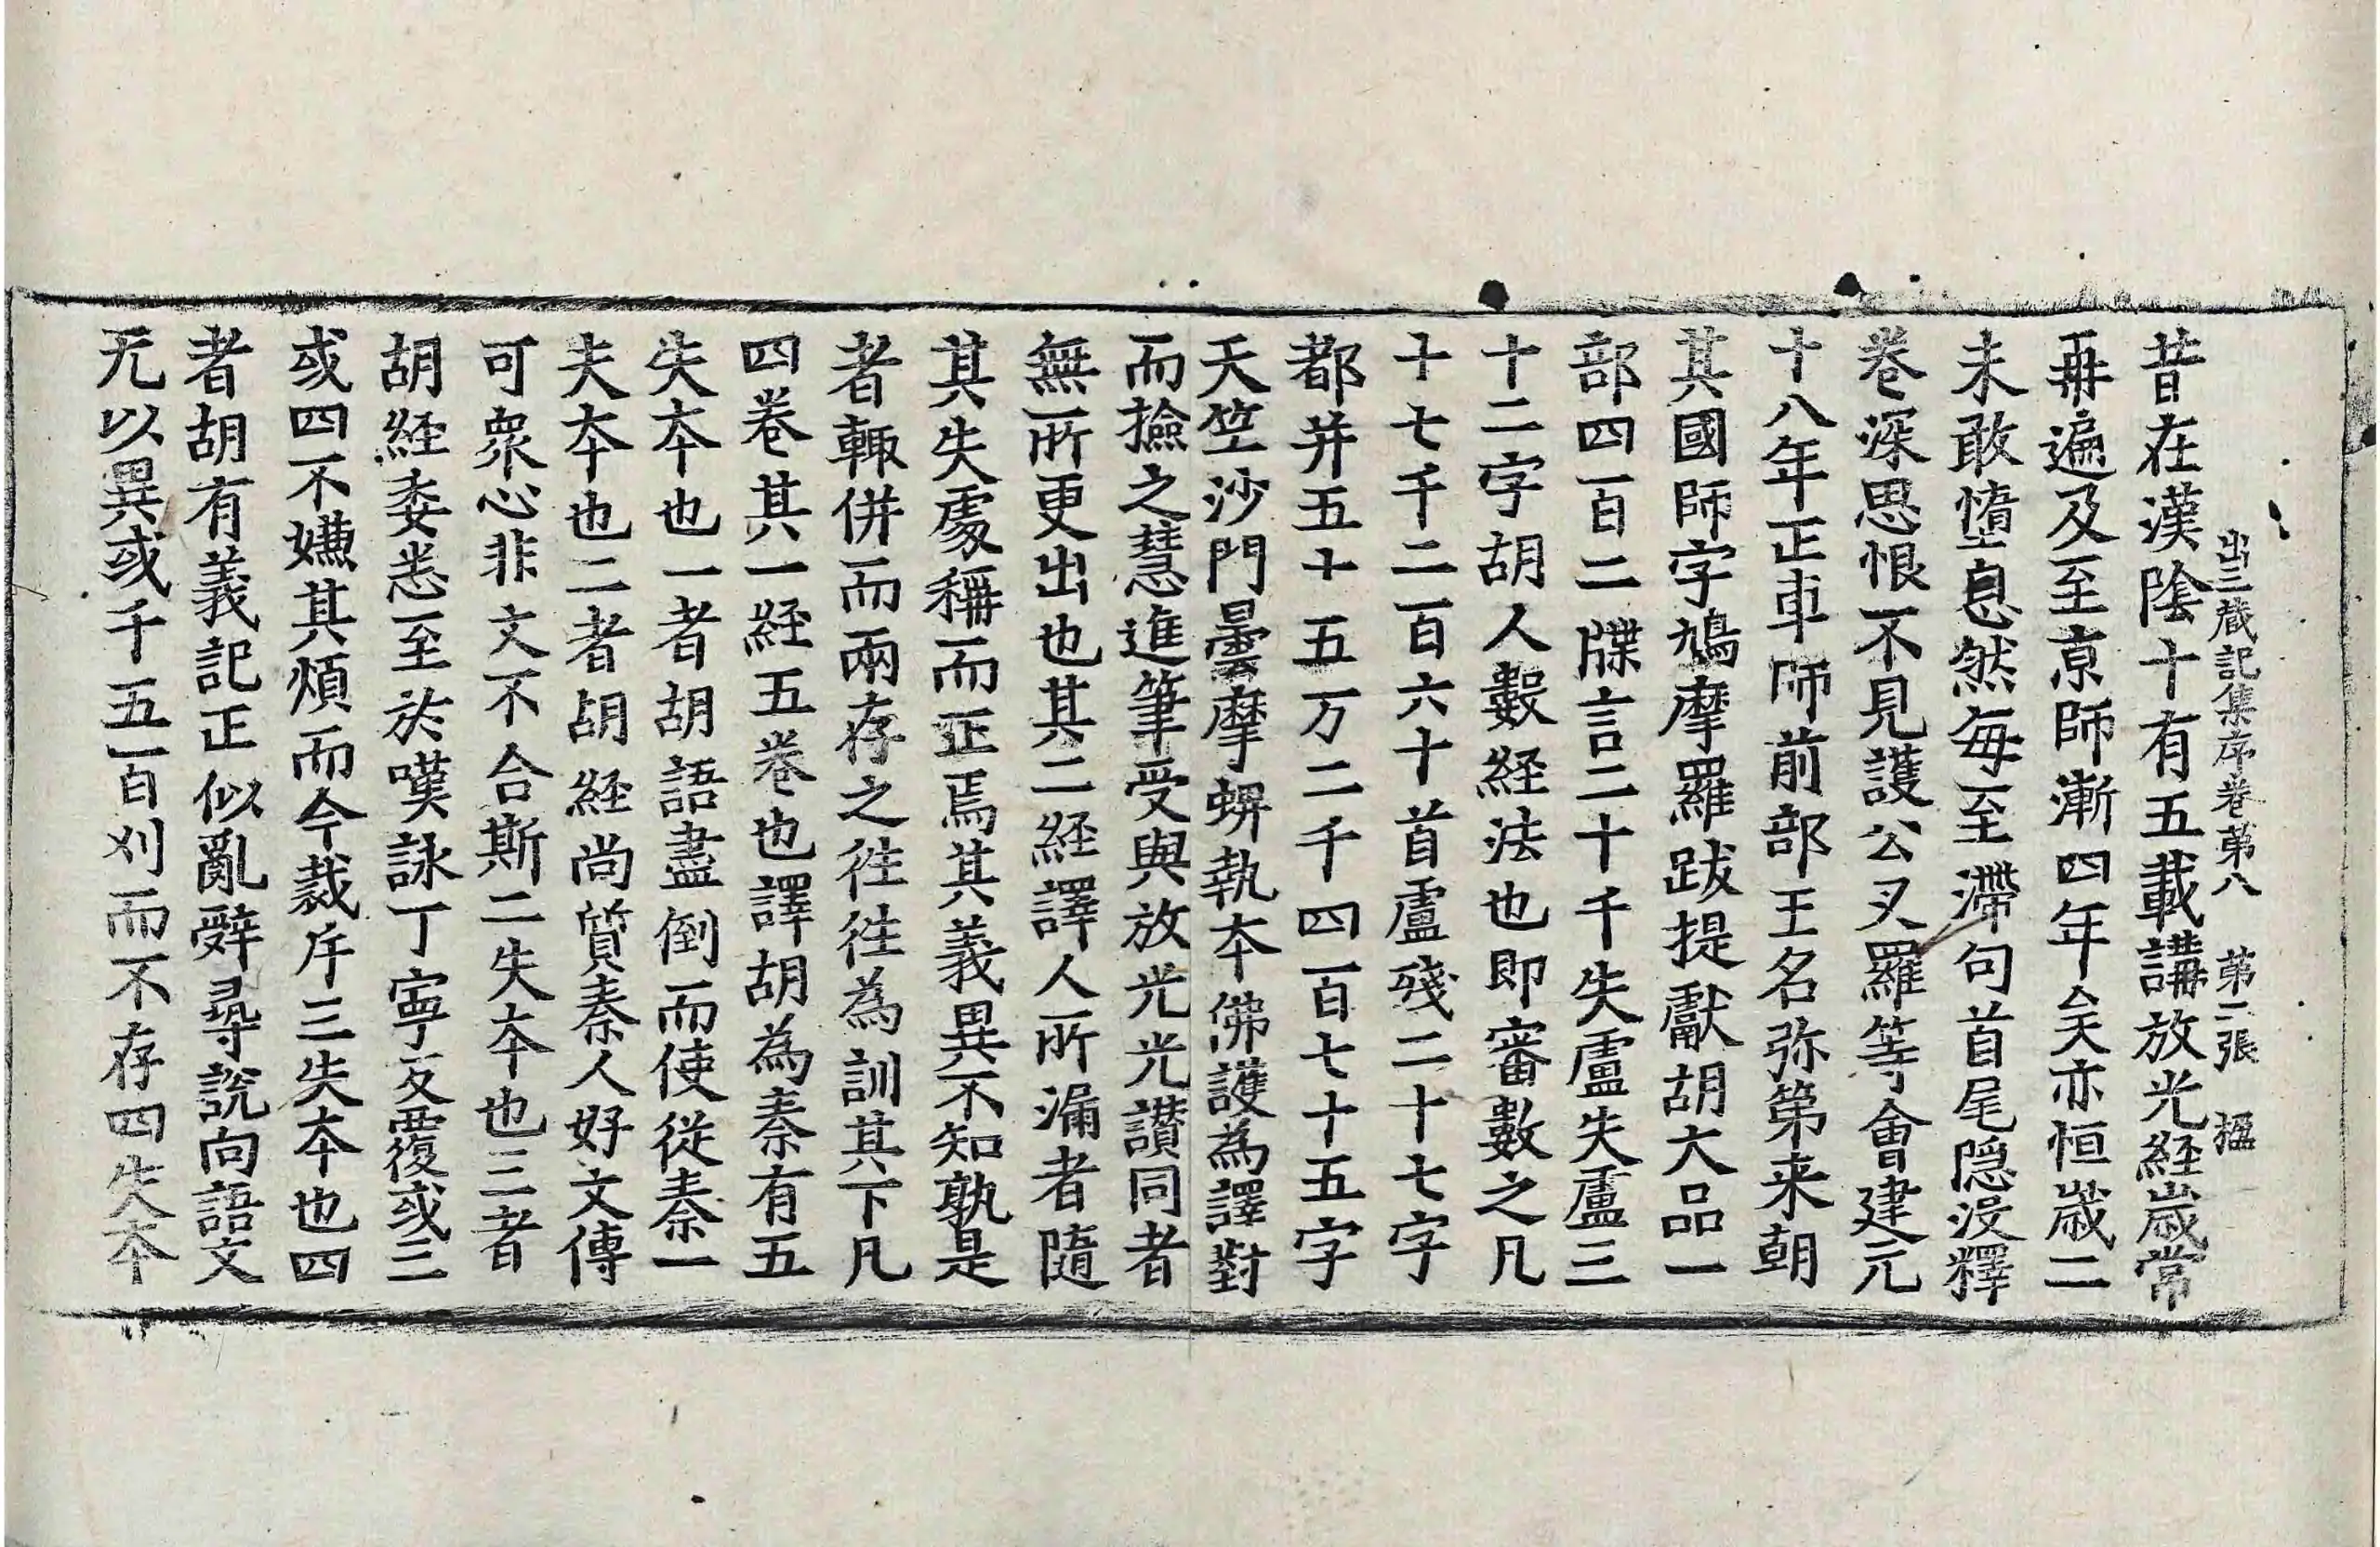 出三藏記集序卷第八　第二張　搵
昔在漢陰十有五載講放光経歲常
再遍及至京師漸四年矣亦恒歲二
未敢墮息然每至滯句首尾隠沒釋
卷深思恨不見護公叉羅等會建元
十八年正車師前部王名弥第来朝
其國師字鳩摩羅跋提獻胡大品一
部四百二牒言二十千失盧失盧三
十二字胡人數経法也即審數之凡
十七千二百六十首盧殘二十七字
都并五十五万二千四百七十五字
天竺沙門曇摩蜱執夲佛護為譯對
而撿之慧進筆受與放光光讃同者
無所更出也其二経譯人所漏者隨
其失處稱而正焉其義異不知孰是
者輙併而兩存之往往為訓其下凡
四卷其一経五卷也譯胡為秦有五
失夲也一者胡語盡倒而使從秦一
失夲也二者胡経尚質秦人好文傳
可衆心非文不合斯二失夲也三者
胡経委悉至於嘆詠丁寧反覆或三
或四不嫌其煩而今裁斥三失夲也四
者胡有義記正似亂辭尋說向語文
无以異或千五百刈而不存四失夲